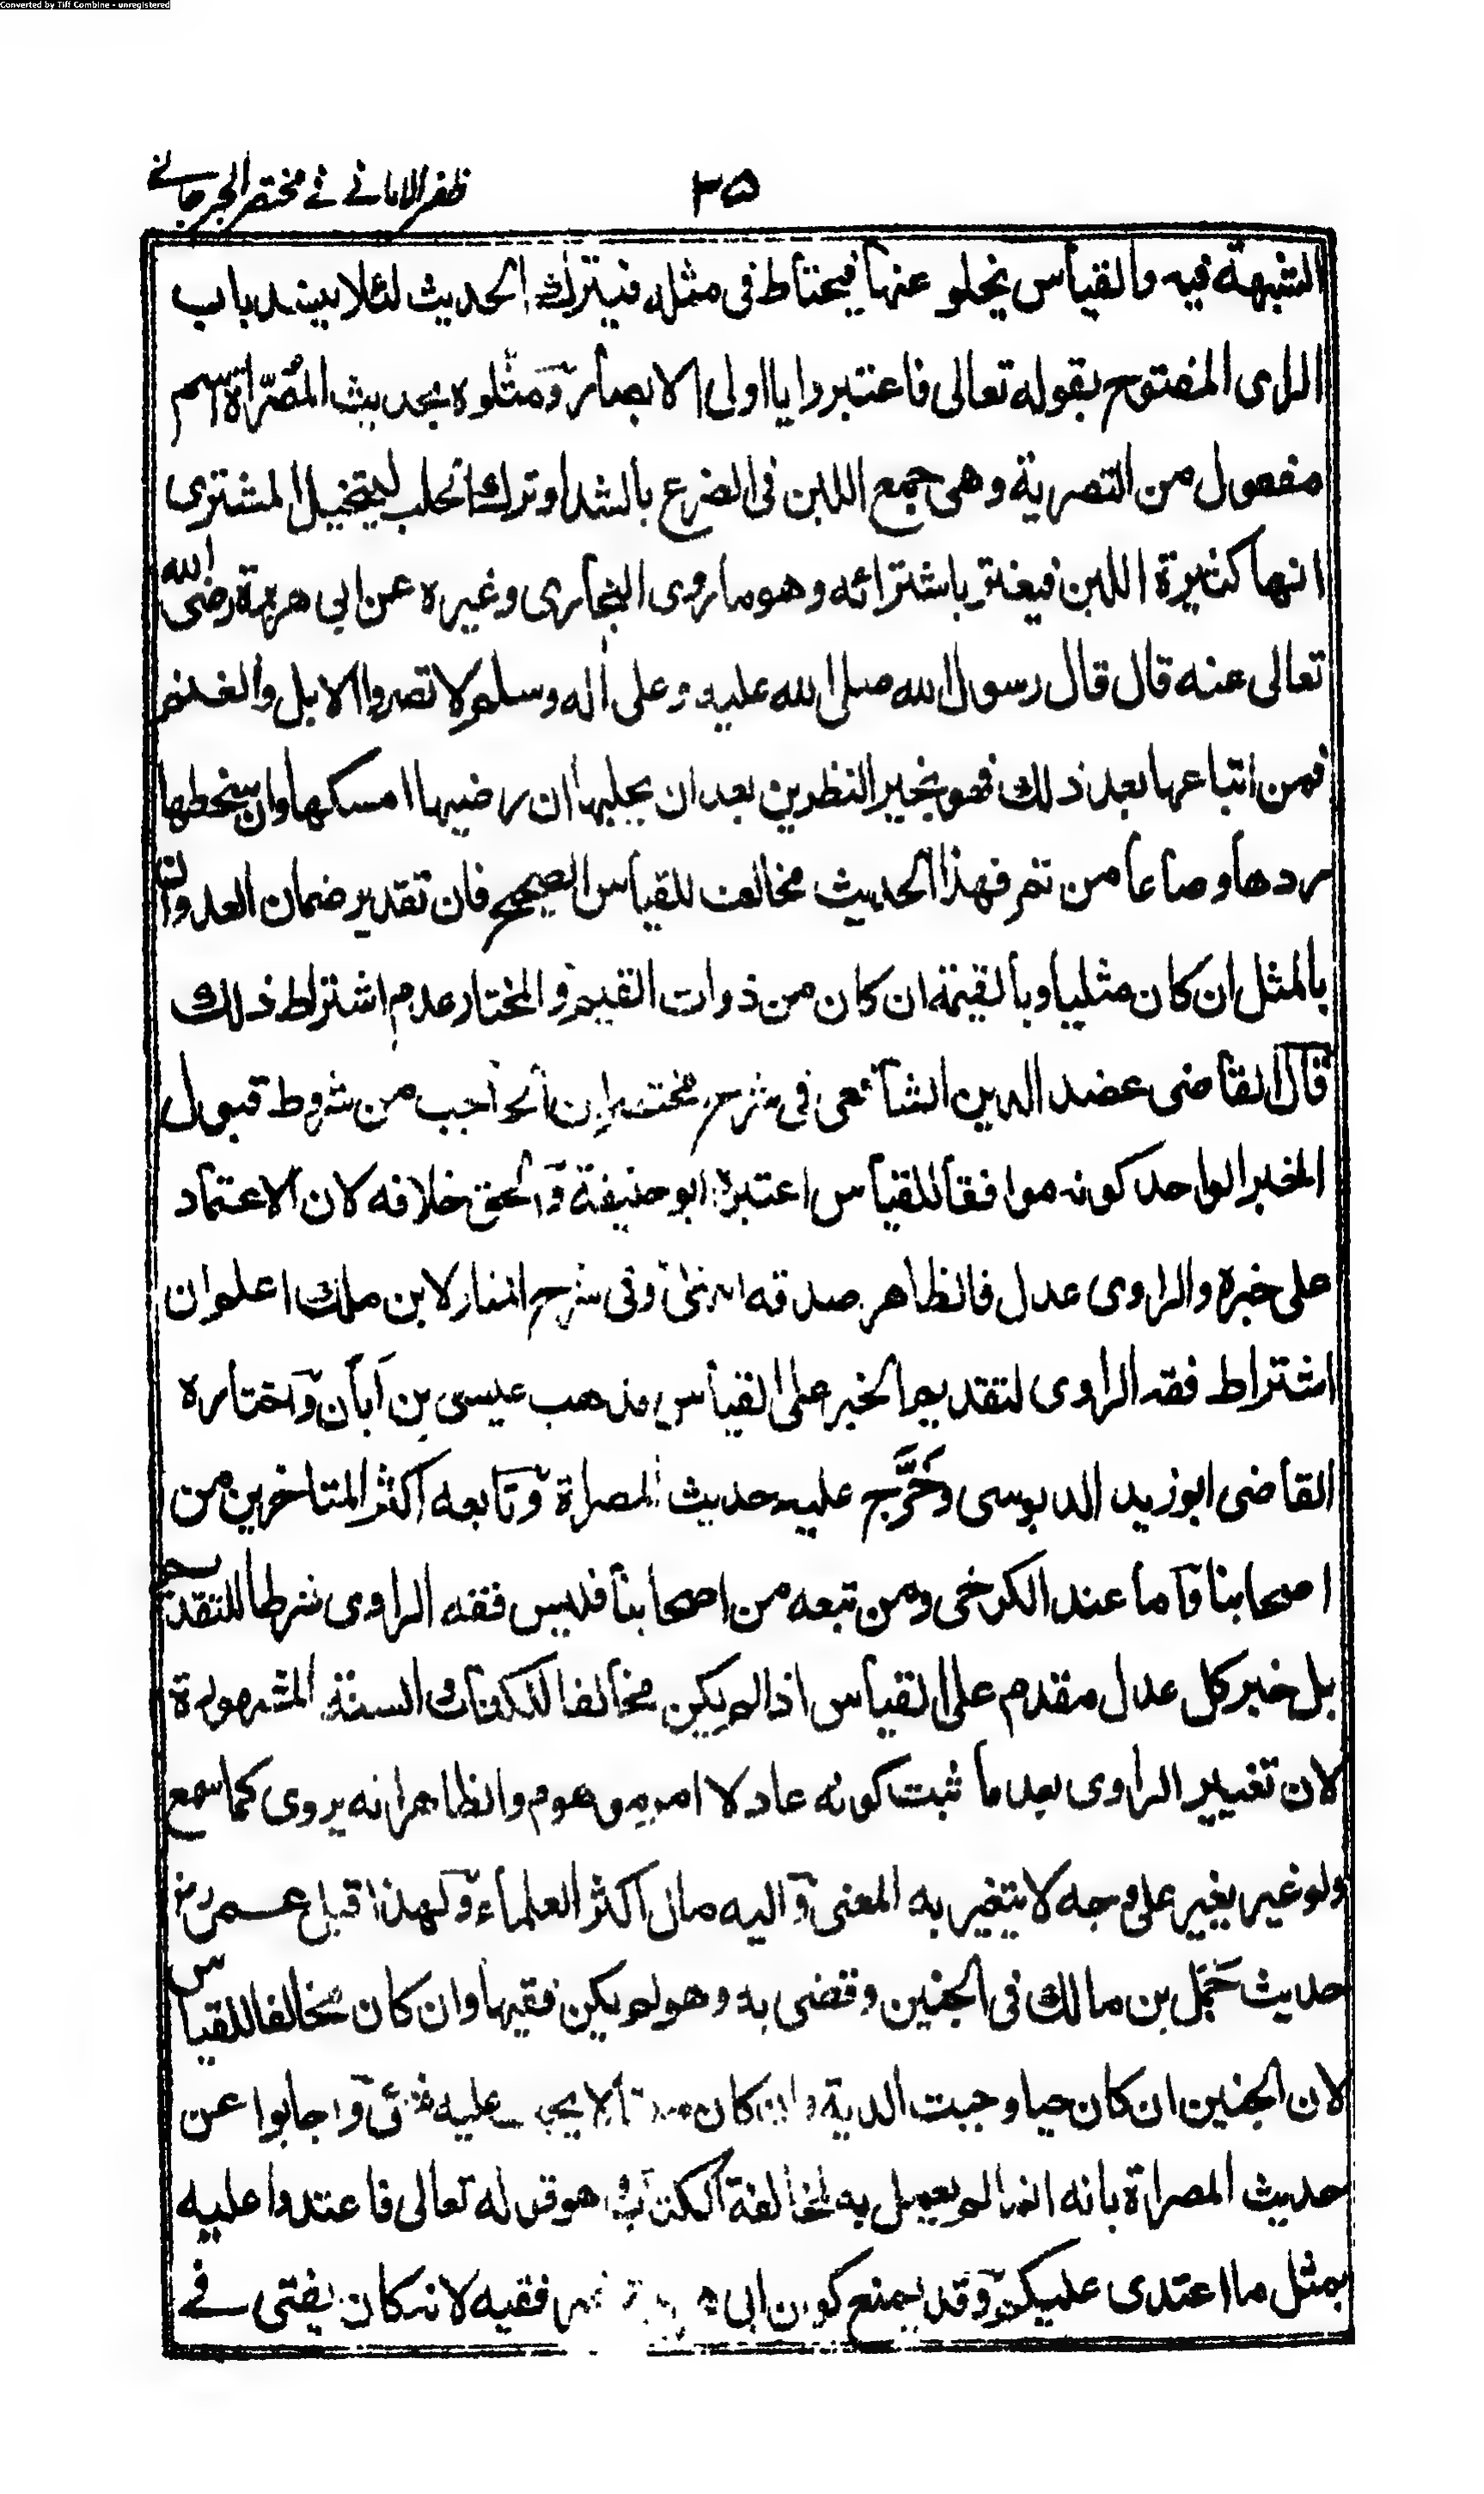 Converted by Tiff Combine - unregistered
ظفر الامانے فے مختصر الجرجانے
٣۵
الشبهة فيه والقياس يخلو عنها فيحتاط فى مثله فيترك الحديث لئلا ينسد باب
الراى المفتوح بقوله تعالى فاعتبروا يا اولى الابصار ومثلوه بحديث المُصَرّاة اسم
مفعول من التصرية وهى جمع اللبن فى الضرع بالشد او ترك الحلب ليتخيل المشترى
انها كثيرة اللبن فيغتر باشترائه وهو ما روى البخارى وغيره عن ابى هريرة رضى الله
تعالى عنه قال قال رسول الله صلى الله عليه وعلى اله وسلم لا تصروا الابل والغنم
فمن ابتاعها بعد ذلك فهو بخير النظرين بعد ان يحلبها ان رضيها امسكها وان سخطها
ردها وصاعا من تمر فهذا الحديث مخالف للقياس الصحيح فان تقدير ضمان العدوان
بالمثل ان كان مثليا وبالقيمة ان كان من ذوات القيم والمختار عدم اشتراط ذلك
قال القاضى عضد الدين الشافعى فى شرح مختصر ابن الحاجب من شروط قبول
الخبر الواحد كونه موافقا للقياس اعتبره ابو حنيفة والحق خلافه لان الاعتماد
على خبره والراوى عدل فالظاهر صدقه انتهى وفى شرح المنار لابن ملك اعلم ان
اشتراط فقه الراوى لتقديم الخبر على القياس مذهب عيسى بن اَبان واختاره
القاضى ابو زيد الدبوسى وخَرَّج عليه حديث المصراة وتابعه اكثر المتاخرين من
اصحابنا واما عند الكرخى ومن تبعه من اصحابنا فليس فقه الراوى شرطا للتقديم
بل خبر كل عدل مقدم على القياس اذا لم يكن مخالفا للكتاب والسنة المشهورة
لان تغيير الراوى بعد ما ثبت كونه عادلا امر موهوم والظاهر انه يروى كما سمع
ولو غير يغير على وجه لا يتغير به المعنى واليه مال اكثر العلماء ولهذا قبل عمر رض
حديث حَمَل بن مالك فى الجنين وقضى به وهو لم يكن فقيها وان كان مخالفا للقياس
لان الجنين ان كان حيا وجبت الدية وان كان ميتا لا يجب عليه شئ واجابوا عن
حديث المصراة بانه انما لم يعمل به لمخالفة الكتاب هو قوله تعالى فاعتدوا عليه
بمثل ما اعتدى عليكم وقد يمنع كون ابى فقيه لانه كان يفتى فے